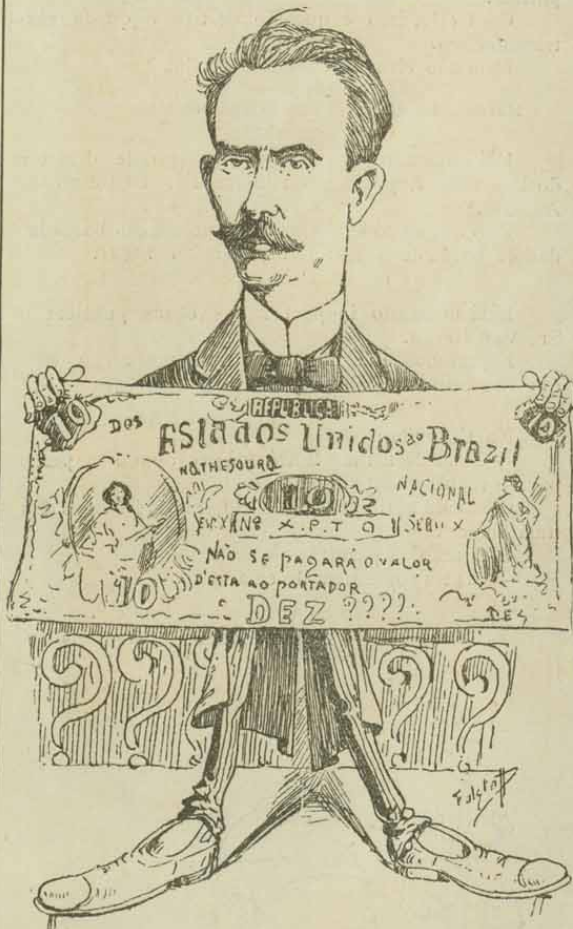 REPUBLICA
DOS
EStados Unidos do Brazil
NO THESOURO
NACIONAL
10
Nº X.P.T O
SERIE X
NÃO SE PAGARÁ O VALOR
D'ESTA AO PORTADOR
DEZ ????
10
10
DES
? ? ? ?